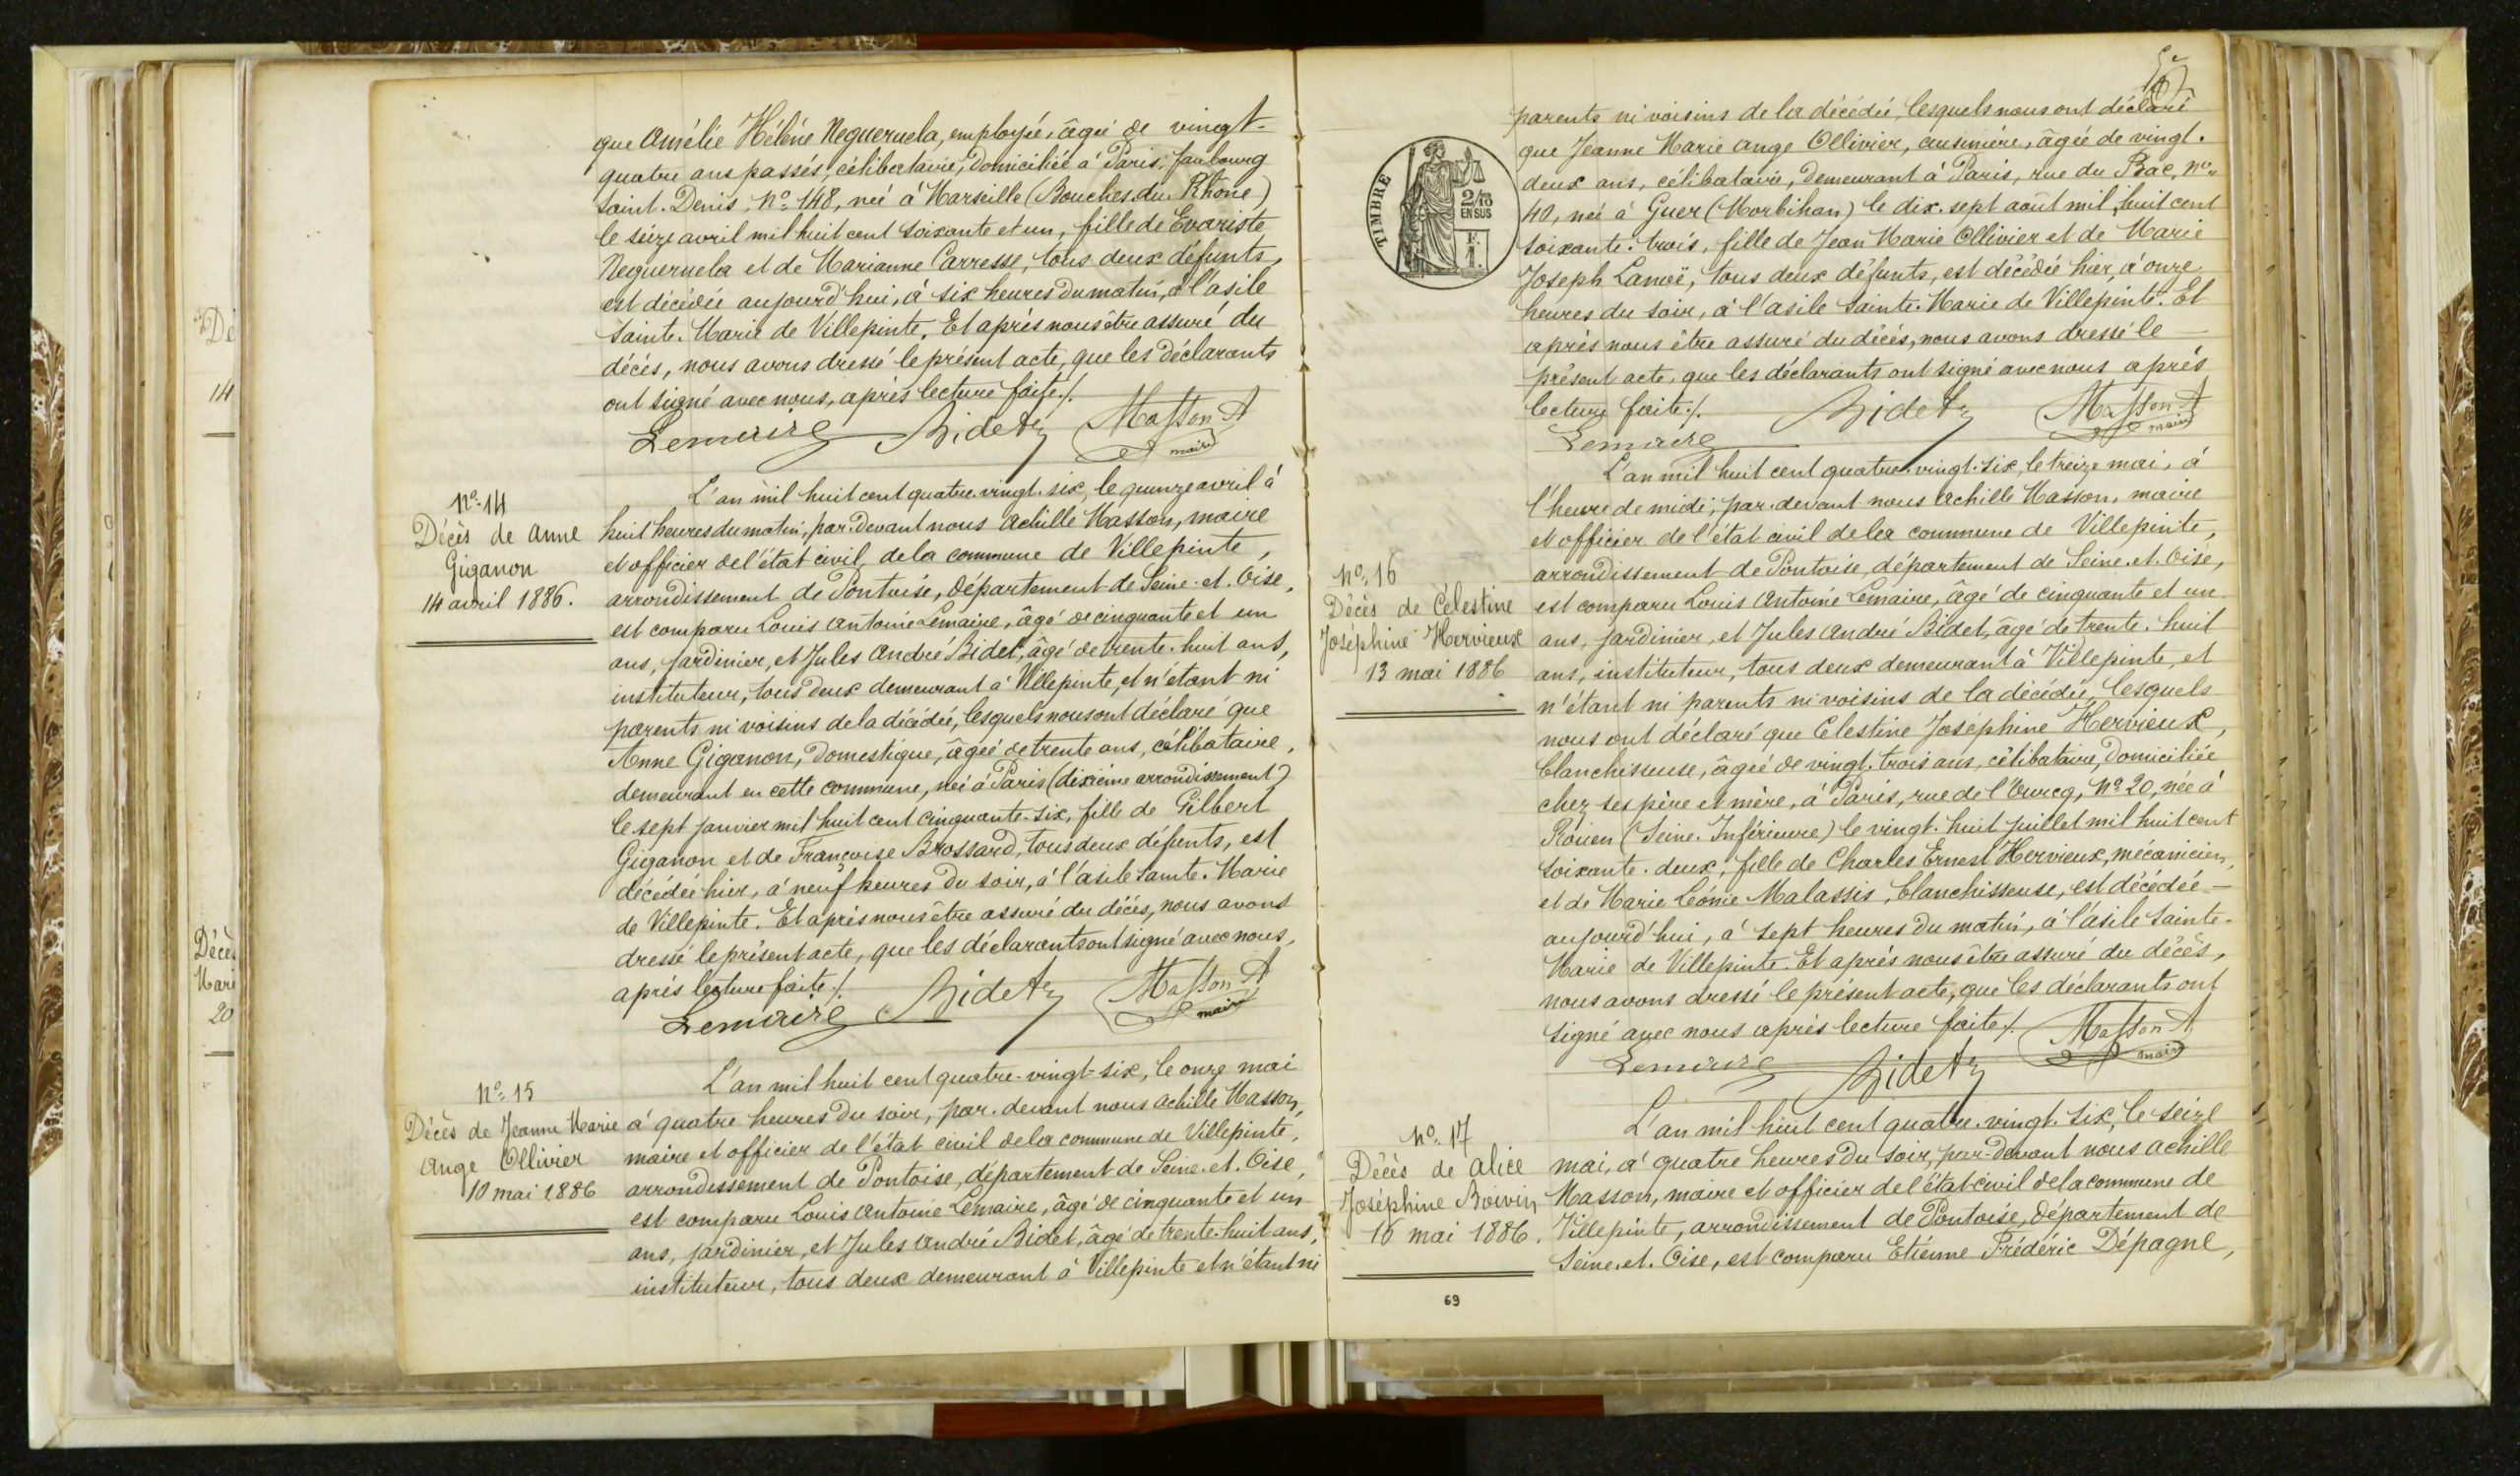 que Amélie Hélène Negueruela, employée, âgée de vingt-
quatre ans passés, célibataire, domiciliée à Paris, faubourg
Saint. Denis, N° 148, née à Marseille (Bouches. du. Rhône)
le seize avril mil huit cent soixante et un, fille de Evariste
Negueruela et de Marianne Carresse, tous deux défunts,
est décédée aujourd'hui, à six heures du matin, à l'asile
Sainte. Marie de Villepinte. Et après nous être assuré du
décès, nous avons dressé le présent acte, que les déclarants
ont signé avec nous, après lecture faite./.
Lemaire Bidet Masson A
maire
N° 14
Décès de Anne
Giganon
14 avril 1886.
L'an mil huit cent quatre. vingt. six, le quinze avril à
huit heures du matin, par. devant nous Achille Masson, maire
et officier de l'état civil de la commune de Villepinte,
arrondissement de Pontoise, département de Seine. et. Oise,
est comparu Louis Antoine Lemaire, âgé de cinquante et un
ans, jardinier, et Jules André Bidet, âgé de trente. huit ans,
instituteur, tous deux demeurant à Villepinte, et n'étant ni
parents ni voisins de la décédée, lesquels nous ont déclaré que
Anne Giganon, domestique, âgée de trente ans, célibataire,
demeurant en cette commune, née à Paris (dixième arrondissement)
le sept janvier mil huit cent cinquante-six, fille de Gilbert
Giganon et de Françoise Brossard, tous deux défunts, est
décédée hier, à neuf heures du soir, à l'asile Sainte. Marie
de Villepinte. Et après nous être assuré du décès, nous avons
dressé le présent acte, que les déclarants ont signé avec nous,
après lecture faite./.
Lemaire Bidet Masson A
maire
N° 15
Décès de Jeanne Marie
Ange Ollivier
10 mai 1886
L'an mil huit cent quatre-vingt-six, le onze mai
à quatre heures du soir, par. devant nous Achille Masson,
maire et officier de l'état civil de la commune de Villepinte,
arrondissement de Pontoise, département de Seine. et. Oise,
est comparu Louis Antoine Lemaire, âgé de cinquante et un
ans, jardinier, et Jules André Bidet, âgé de trente-huit ans,
instituteur, tous deux demeurant à Villepinte et n'étant ni
TIMBRE
2/10
EN SUS
F.
1.
parents ni voisins de la décédée, lesquels nous ont déclaré
que Jeanne Marie Ange Ollivier, cuisinière, âgée de vingt.
deux ans, célibataire, demeurant à Paris, rue du Bac, N°
40, née à Guer (Morbihan) le dix. sept août mil huit cent
soixante. trois, fille de Jean Marie Ollivier et de Marie
Joseph Lanoë, tous deux défunts, est décédée hier, à onze
heures du soir, à l'asile Sainte. Marie de Villepinte. Et
après nous être assuré du décès, nous avons dressé le
présent acte, que les déclarants ont signé avec nous après
lecture faite./.
Lemaire Bidet Masson A
maire
N° 16
Décès de Célestine
Joséphine Hervieux
13 mai 1886
L'an mil huit cent quatre. vingt. six, le treize mai, à
l'heure de midi, par. devant nous Achille Masson, maire
et officier de l'état civil de la commune de Villepinte,
arrondissement de Pontoise, département de Seine. et. Oise,
est comparu Louis Antoine Lemaire, âgé de cinquante et un
ans, jardinier, et Jules André Bidet, âgé de trente. huit
ans, instituteur, tous deux demeurant à Villepinte, et
n'étant ni parents ni voisins de la décédée, lesquels
nous ont déclaré que Célestine Joséphine Hervieux,
blanchisseuse, âgée de vingt. trois ans, célibataire, domiciliée
chez ses père et mère, à Paris, rue de l'Ourcq, N° 20, née à
Rouen (Seine. Inférieure) le vingt. huit juillet mil huit cent
soixante. deux, fille de Charles Ernest Hervieux, mécanicien,
et de Marie Léonie Malassis, blanchisseuse, est décédée
aujourd'hui, à sept heures du matin, à l'asile Sainte-
Marie de Villepinte. Et après nous être assuré du décès,
nous avons dressé le présent acte, que les déclarants ont
signé avec nous après lecture faite./.
Lemaire Bidet Masson A
maire
N° 17
Décès de Alice
Joséphine Boivin
16 mai 1886.
L'an mil huit cent quatre. vingt. six, le seize
mai, à quatre heures du soir, par-devant nous Achille
Masson, maire et officier de l'état civil de la commune de
Villepinte, arrondissement de Pontoise, département de
Seine. et. Oise, est comparu Etienne Frédéric Dépagne,
69
Dé
14
Décès
Mari
20